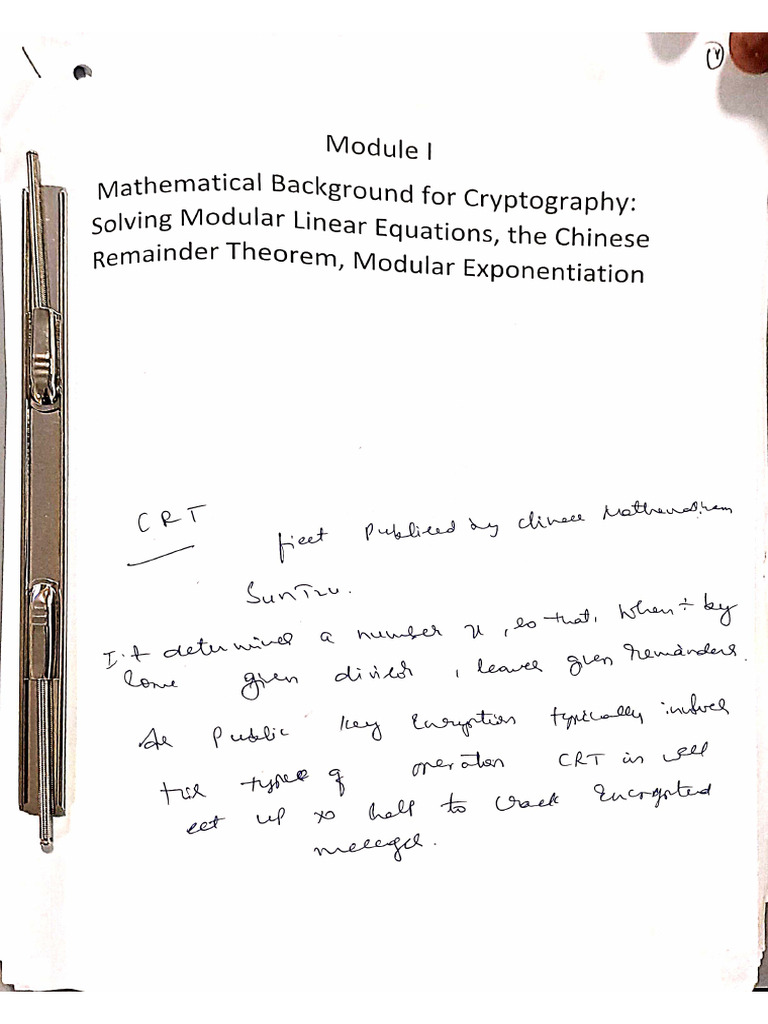 Module I
Mathematical Background for Cryptography:
Solving Modular Linear Equations, the Chinese
Remainder Theorem, Modular Exponentiation
CRT
first Publised by chinese Mathematician
SunTzu.
It determines a number x, so that, when ÷ by
some given divisor, leaves given remainders.
As Public key Encryption typically involves
this types of operation CRT is well
set up to help to crack Encrypted
messages.